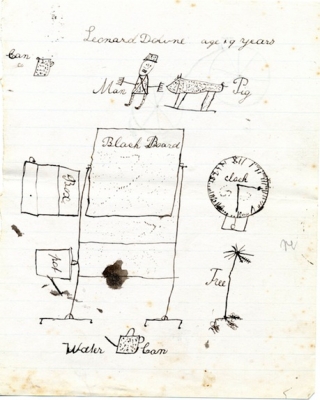 Leonard Devine age 9 years
Can
Man
Pig
Black Board
Box
clock
pot
Tree
Water Can